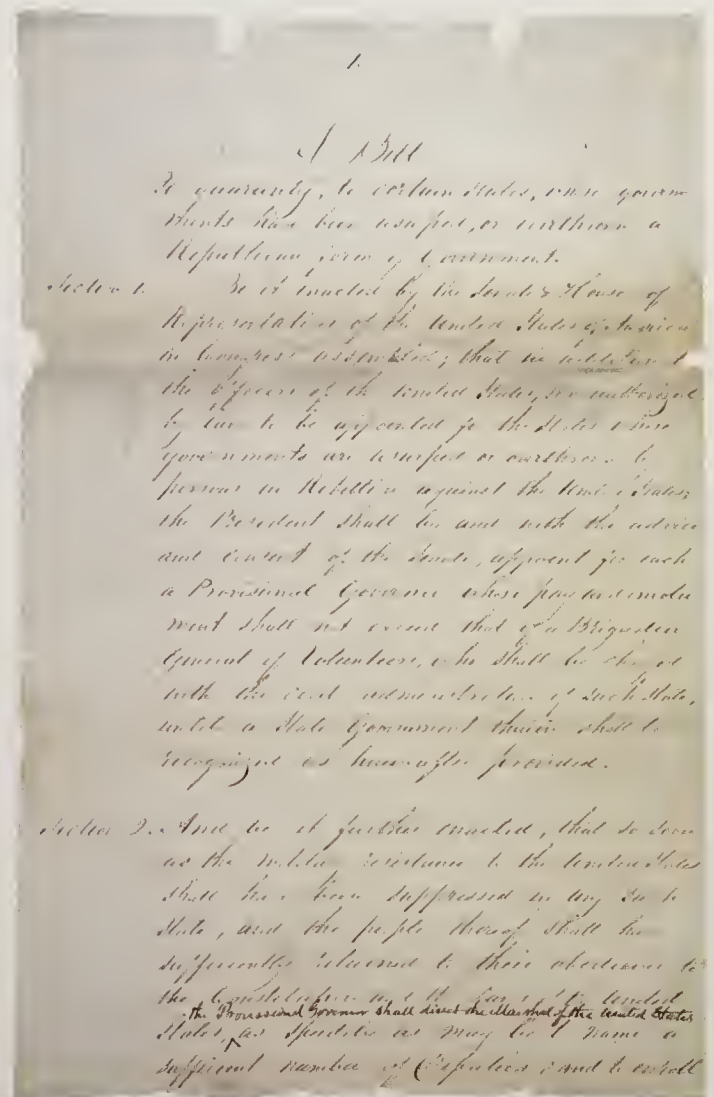 1.
A Bill
To guaranty, to certain States, whose govern
ments have been usurped, or overthrown a
Republican form of Government.
Section 1. Be it enacted by the Senate & House of
Representatives of the United States of America
in Congress assembled; that in
the of the United States, authorized
by law to be appointed for the States whose
Governments are usurped or overthrown by
persons in Rebellion against the United States
the President shall by and with the advice
and consent of the Senate, appoint for each
a Provisional Governor whose pay and emolu
ment shall not exceed that of a Brigadier
General of Volunteers, who shall be charged
with the civil administration of such State,
until a State Government therein shall be
recognized as hereafter provided.
Section 2. And be it further enacted, that so soon
as the military resistance to the United States
shall have been suppressed in any such
State, and the people thereof shall have
sufficiently returned to their obedience to
the Constitution and the Laws of the United
the Provisional Governor shall direct the Marshal of the United States
States, as speedily as may be to name a
sufficient number of Deputies; and to enroll